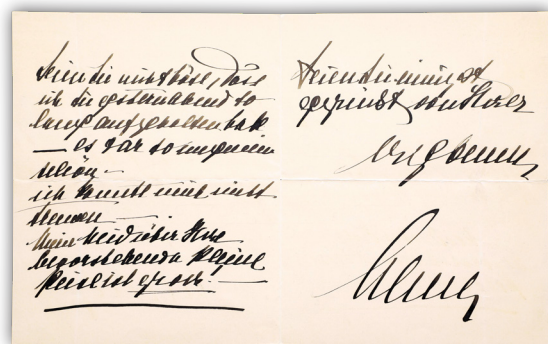 Seien Sie nicht böse, dass
ich Sie gestern abend so
lang aufgehalten hab
— es war so ungemein
schön —
ich konnte mich nicht
trennen —
Mein Neid über Ihre
bevorstehende kleine
Reise ist gross. —
Seien Sie innigst
gegrüsst von Ihrer